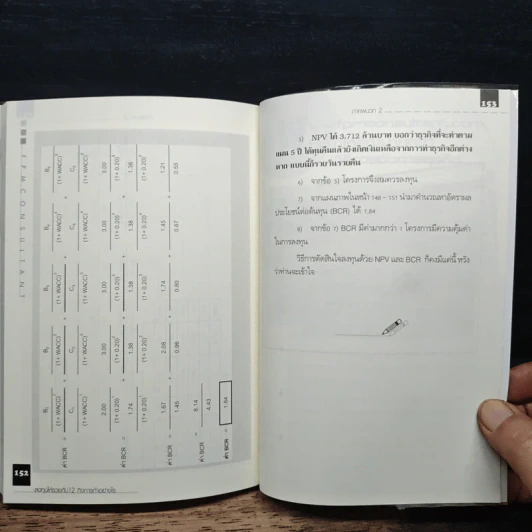 IPMCONSULTANT
B₁ B₂ B₃ B₄ B₅
(1+ WACC)¹ (1+ WACC)² (1+ WACC)³ (1+ WACC)⁴ (1+ WACC)⁵
ค่า BCR = + + + +
C₁ C₂ C₃ C₄ C₅
(1+ WACC)¹ (1+ WACC)² (1+ WACC)³ (1+ WACC)⁴ (1+ WACC)⁵
2.00 3.00 3.00 3.00 3.00
(1+ 0.20)¹ (1+ 0.20)² (1+ 0.20)³ (1+ 0.20)⁴ (1+ 0.20)⁵
ค่า BCR = + + + +
1.74 1.38 1.38 1.38 1.38
(1+ 0.20)¹ (1+ 0.20)² (1+ 0.20)³ (1+ 0.20)⁴ (1+ 0.20)⁵
1.67 + 2.08 + 1.74 + 1.45 + 1.21
ค่า BCR =
1.45 + 0.96 + 0.80 + 0.67 + 0.55
8.14
ค่า BCR =
4.43
ค่า BCR = 1.84
152
ลงทุนให้รวยกับ12 กิจการทำอย่างไร
ภาคผนวก 2
153
5) NPV ได้ 3.712 ล้านบาท บอกว่าธุรกิจที่จะทำตาม
แผน 5 ปี ได้ทุนคืนแล้วยังเกิดเงินเหลือจากการทำธุรกิจอีกต่าง
หาก แบบนี้ก็รวยวันรวยคืน
6) จากข้อ 5) โครงการจึงสมควรลงทุน
7) จากแผนภาพในหน้า 148 – 151 นำมาคำนวณหาอัตราผล
ประโยชน์ต่อต้นทุน (BCR) ได้ 1.84
8) จากข้อ 7) BCR มีค่ามากกว่า 1 โครงการมีความคุ้มค่า
ในการลงทุน
วิธีการตัดสินใจลงทุนด้วย NPV และ BCR ก็คงมีแค่นี้ หวัง
ว่าท่านจะเข้าใจ